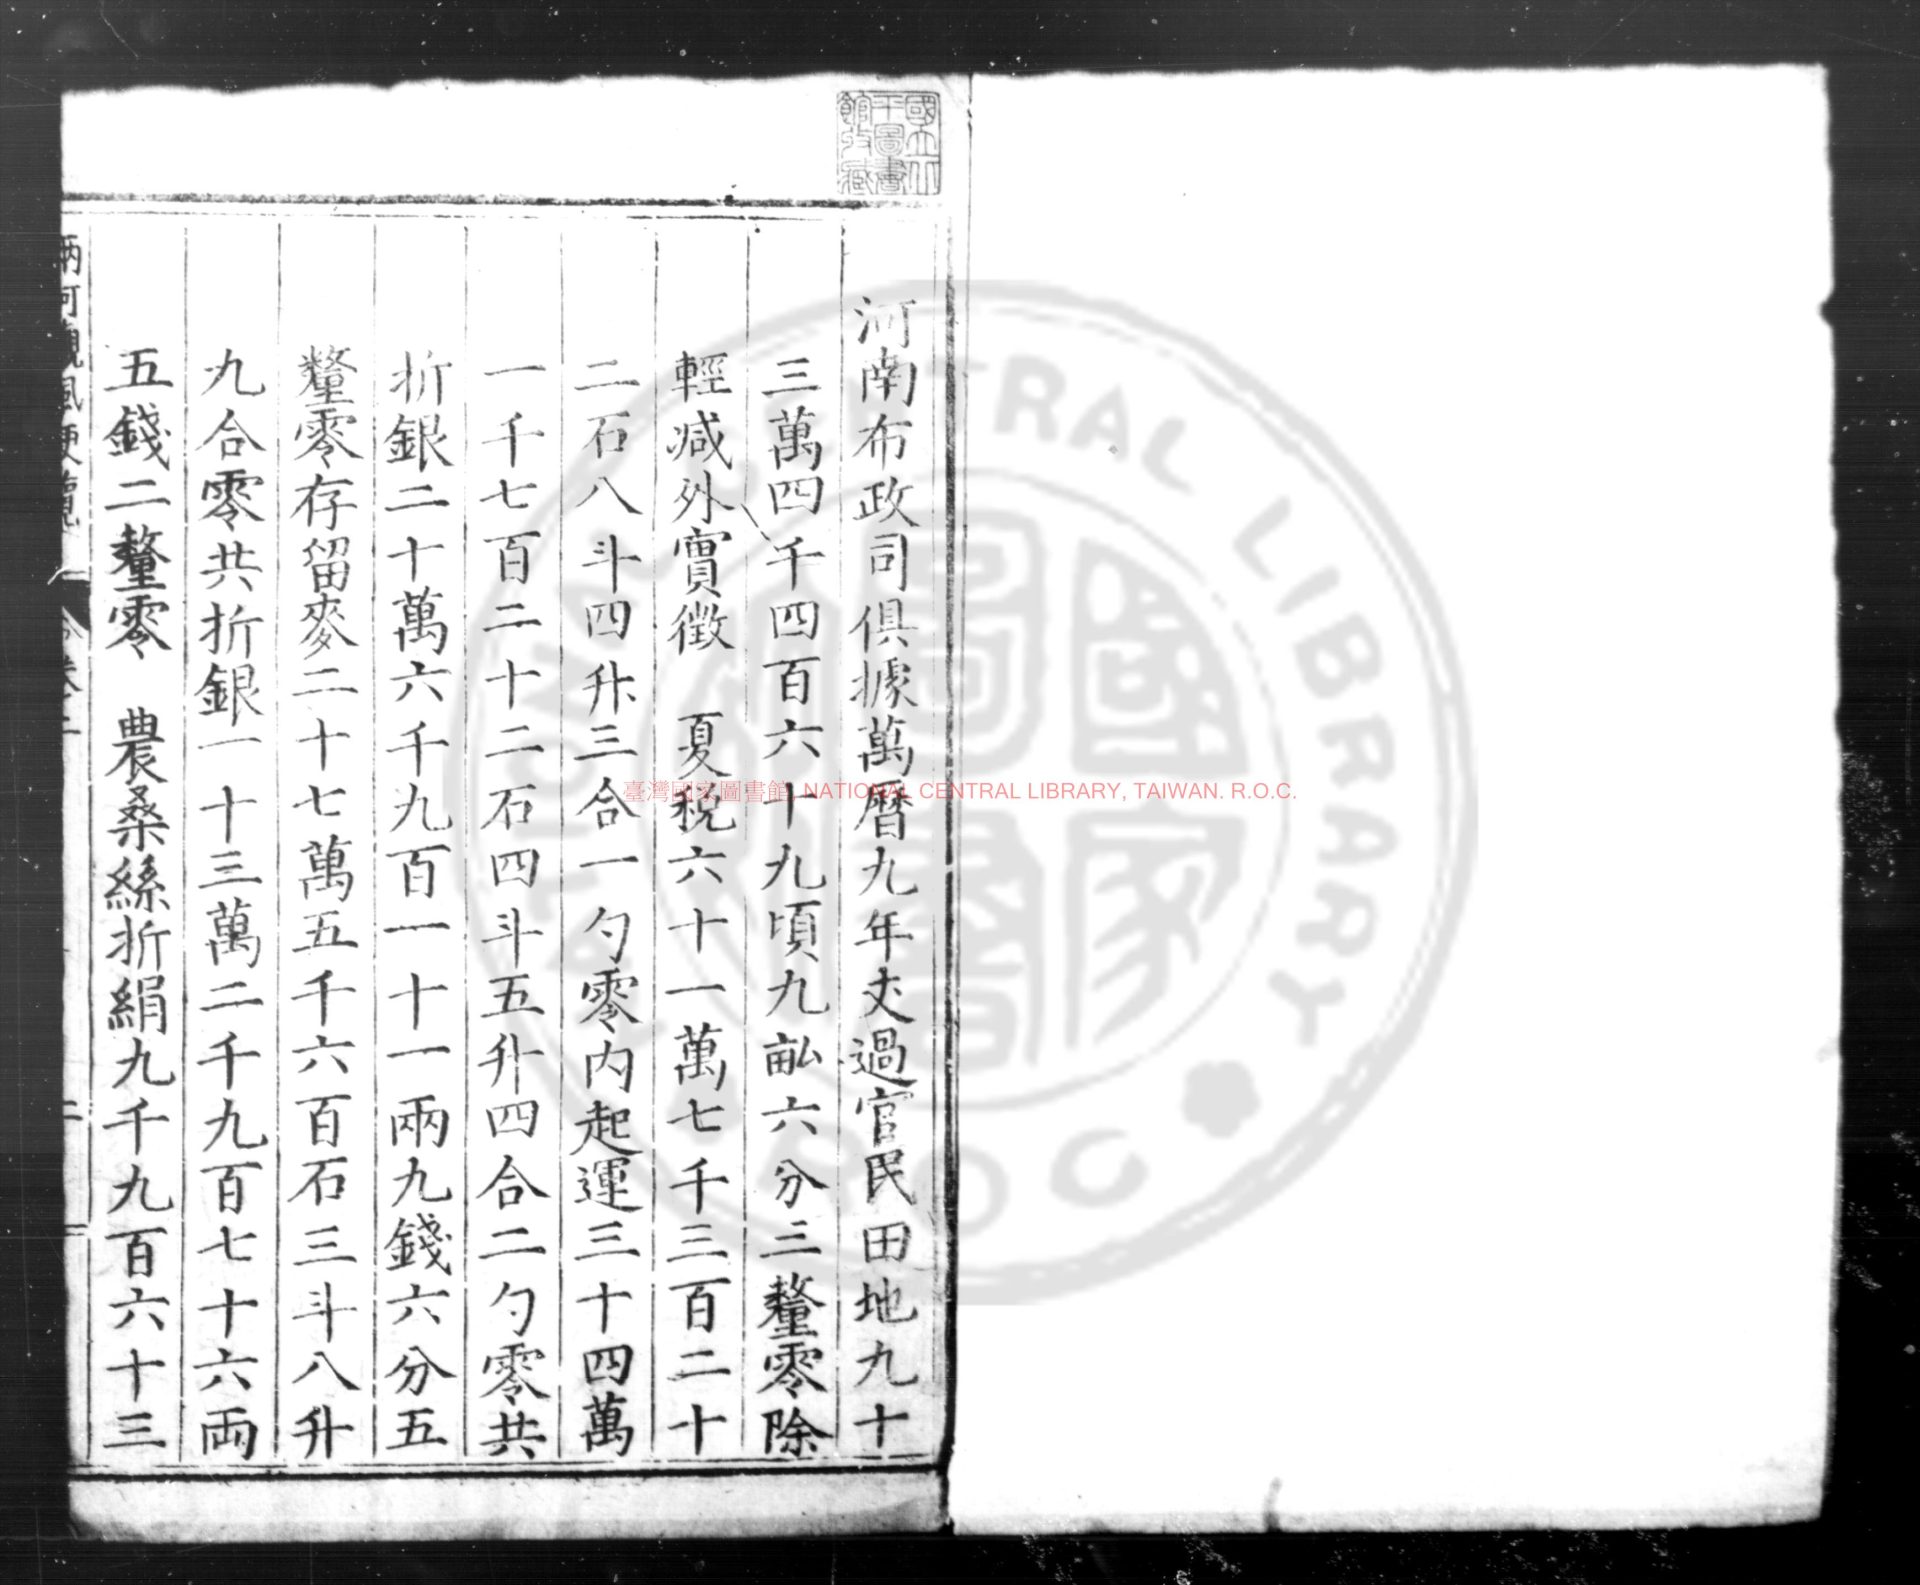 河南布政司俱據萬曆九年丈過官民田地九十
三萬四千四百六十九頃九畝六分三釐零除
輕減外實徵　夏稅六十一萬七千三百二十
二石八斗四升三合一勺零內起運三十四萬
一千七百二十二石四斗五升四合二勺零共
折銀二十萬六千九百一十一兩九錢六分五
釐零存留麥二十七萬五千六百石三斗八升
九合零共折銀一十三萬二千九百七十六兩
五錢二釐零　農桑絲折絹九千九百六十三
兩河觀風便覽
卷之二
國立北平圖書館收藏
臺灣國家圖書館, NATIONAL CENTRAL LIBRARY, TAIWAN. R.O.C.
NATIONAL CENTRAL LIBRARY
R.O.C.
國家圖書